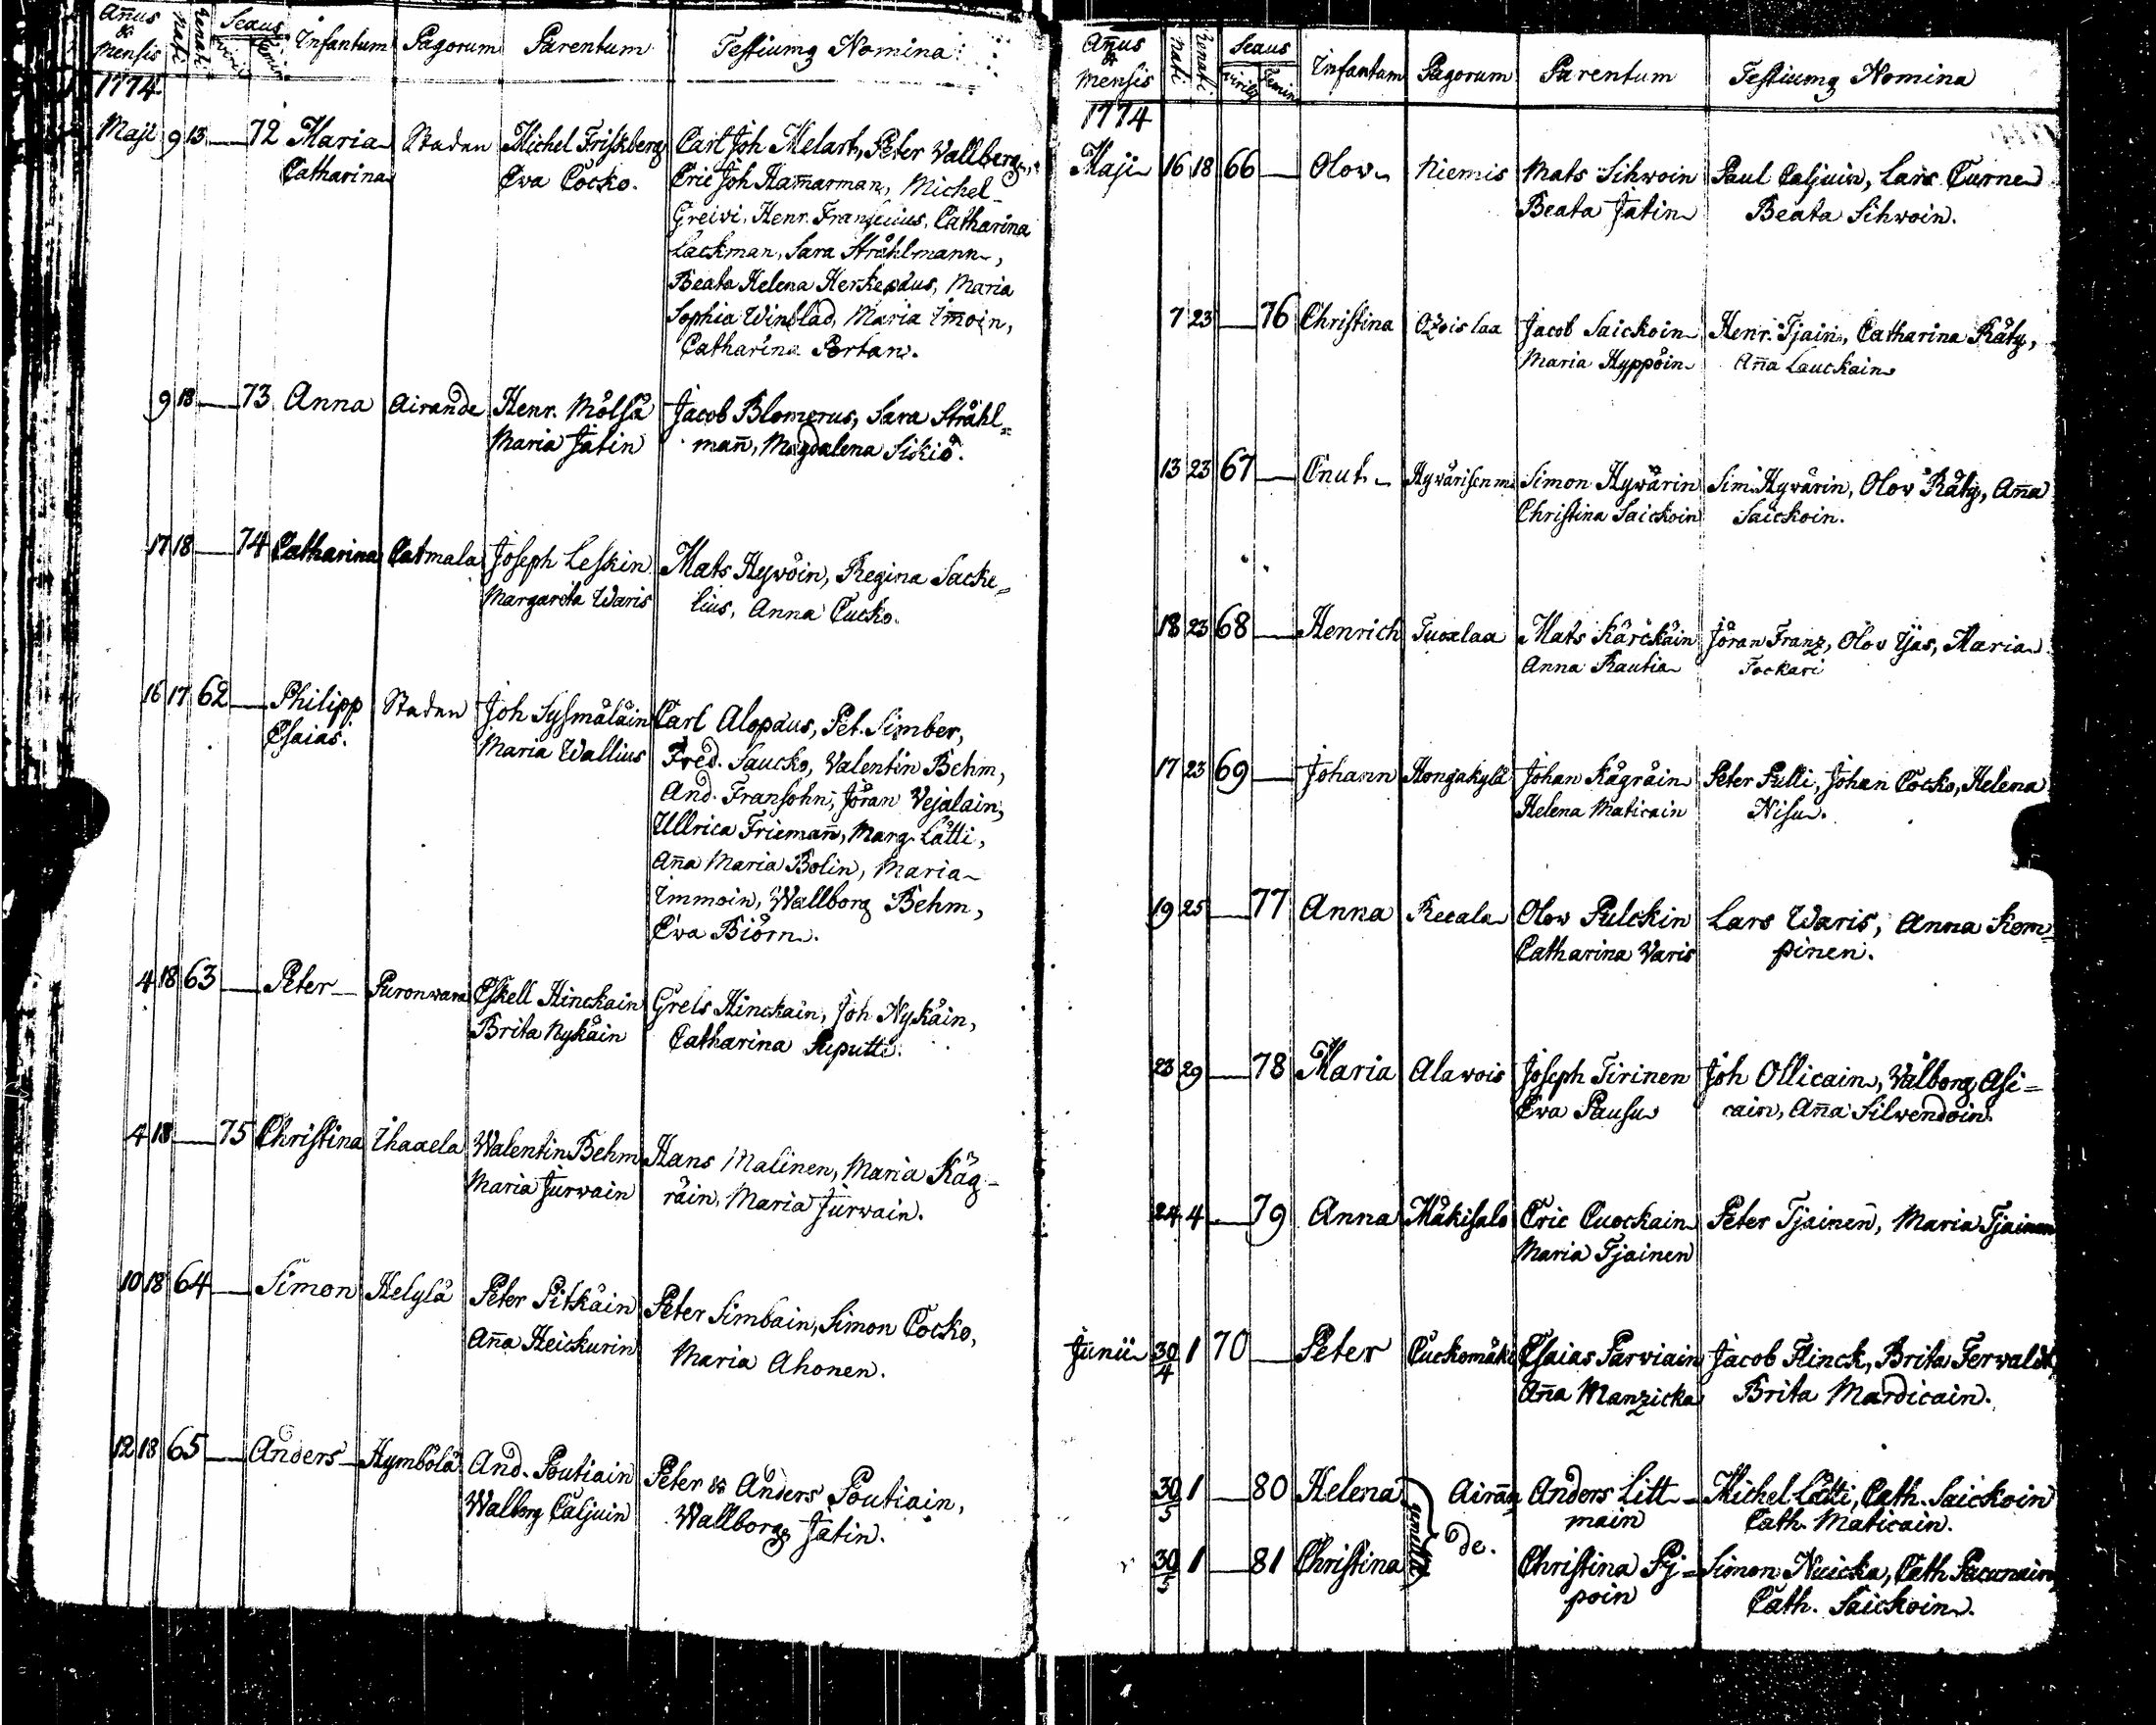 Añus & Mensis Nati Renati Sexus Virilis Femin Infantum Pagorum Parentum Testiumq Nomina
1774
Maji 9 13 — 72 Maria Staden Michel Friskberg Carl Joh Melart, Peter Vallberg,
Catharina Eva Cocko. Eric Joh Ham̃arman, Michel
Greivi, Henr. Franseuius, Catharina
Lackman, Sara Ståhlmann,
Beata Helena Herkepæus, Maria
Sophia Winblad, Maria Im̃oin,
Catharina Portan.
9 18 — 73 Anna Airande Henr. Mölsä Jacob Blomerus, Sara Ståhl=
Maria Jätin mañ, Magdalena Sikiö.
17 18 — 74 Catharina Catmala Joseph Leskin Mats Hyvöin, Regina Sacke=
Margareta Waris lius, Anna Cucko.
16 17 62 — Philipp Staden Joh Sysmäläin Carl Alopæus, Pet. Simber,
Esaias. Maria Wallius Fred. Saucko, Valentin Behm,
And. Fransohn, Jöran Vejalain,
Ullrica Friemañ, Marg. Lätti,
Aña Maria Bolin, Maria
Immoin, Wallborg Behm,
Eva Biörn.
4 18 63 — Peter Puronwara Eskell Hinckain Grels Hinckain, Joh Nykäin,
Brita Nykäin Catharina Puputti.
4 18 — 75 Christina Ihaxela Walentin Behm Hans Malinen, Maria Käg-
Maria Jurvain räin, Maria Jurvain.
10 18 64 — Simon Helylä Peter Pitkäin Peter Simbain, Simon Cocko,
Aña Heickurin Maria Ahonen.
12 18 65 — Anders Hymbölä And. Poutiain Peter & Anders Poutiain,
Walborg Caljuin Wallborg Jätin.
Añus & Mensis Nati Renati Sexus Virilis Femin Infantum Pagorum Parentum Testiumq Nomina
1774
Maji 16 18 66 — Olov Niemis Mats Sihvoin Paul Caljuin, Lars Turne
Beata Jätin Beata Sihvoin.
7 23 — 76 Christina Ozois laa Jacob Saickoin Henr. Tjain, Catharina Räty,
Maria Hyppöin Aña Lauckain
13 23 67 — Cnut Hyvärisenm. Simon Hyvärin Sim. Hyvärin, Olov Räty, Aña
Christina Saickoin Saickoin.
18 23 68 — Henrich Tuoxlaa Mats Kärckäin Jöran Franz, Olov Ijas, Maria
Anna Rautia Tockari
17 23 69 — Johann Hongakylä Johan Kägräin Peter Pulli, Johan Cocko, Helena
Helena Maticain Nisu.
19 25 — 77 Anna Recala Olov Pulckin Lars Waris, Anna Kom=
Catharina Varis pinen.
23 29 — 78 Maria Alawois Joseph Tirinen Joh Ollicain, Valborg Asi=
Eva Pausu cain, Aña Silvendoin.
24 4 — 79 Anna Mäkisalo Eric Cuockain Peter Tjainen, Maria Tjainen
Maria Tjainen
Junii 30/4 1 70 — Peter Cuckomäki Esaias Parviain Jacob Flinck, Brita
Aña Manzicka Brita Mardicain.
30/5 1 — 80 Helena Airan Anders Litt- Michel Lätti, Cath. Saickoin
gemellæ de. main Cath. Maticain.
30/5 1 — 81 Christina Christina Py= Simon Nuicka, Cath Pacunain
poin Cath. Saickoin.